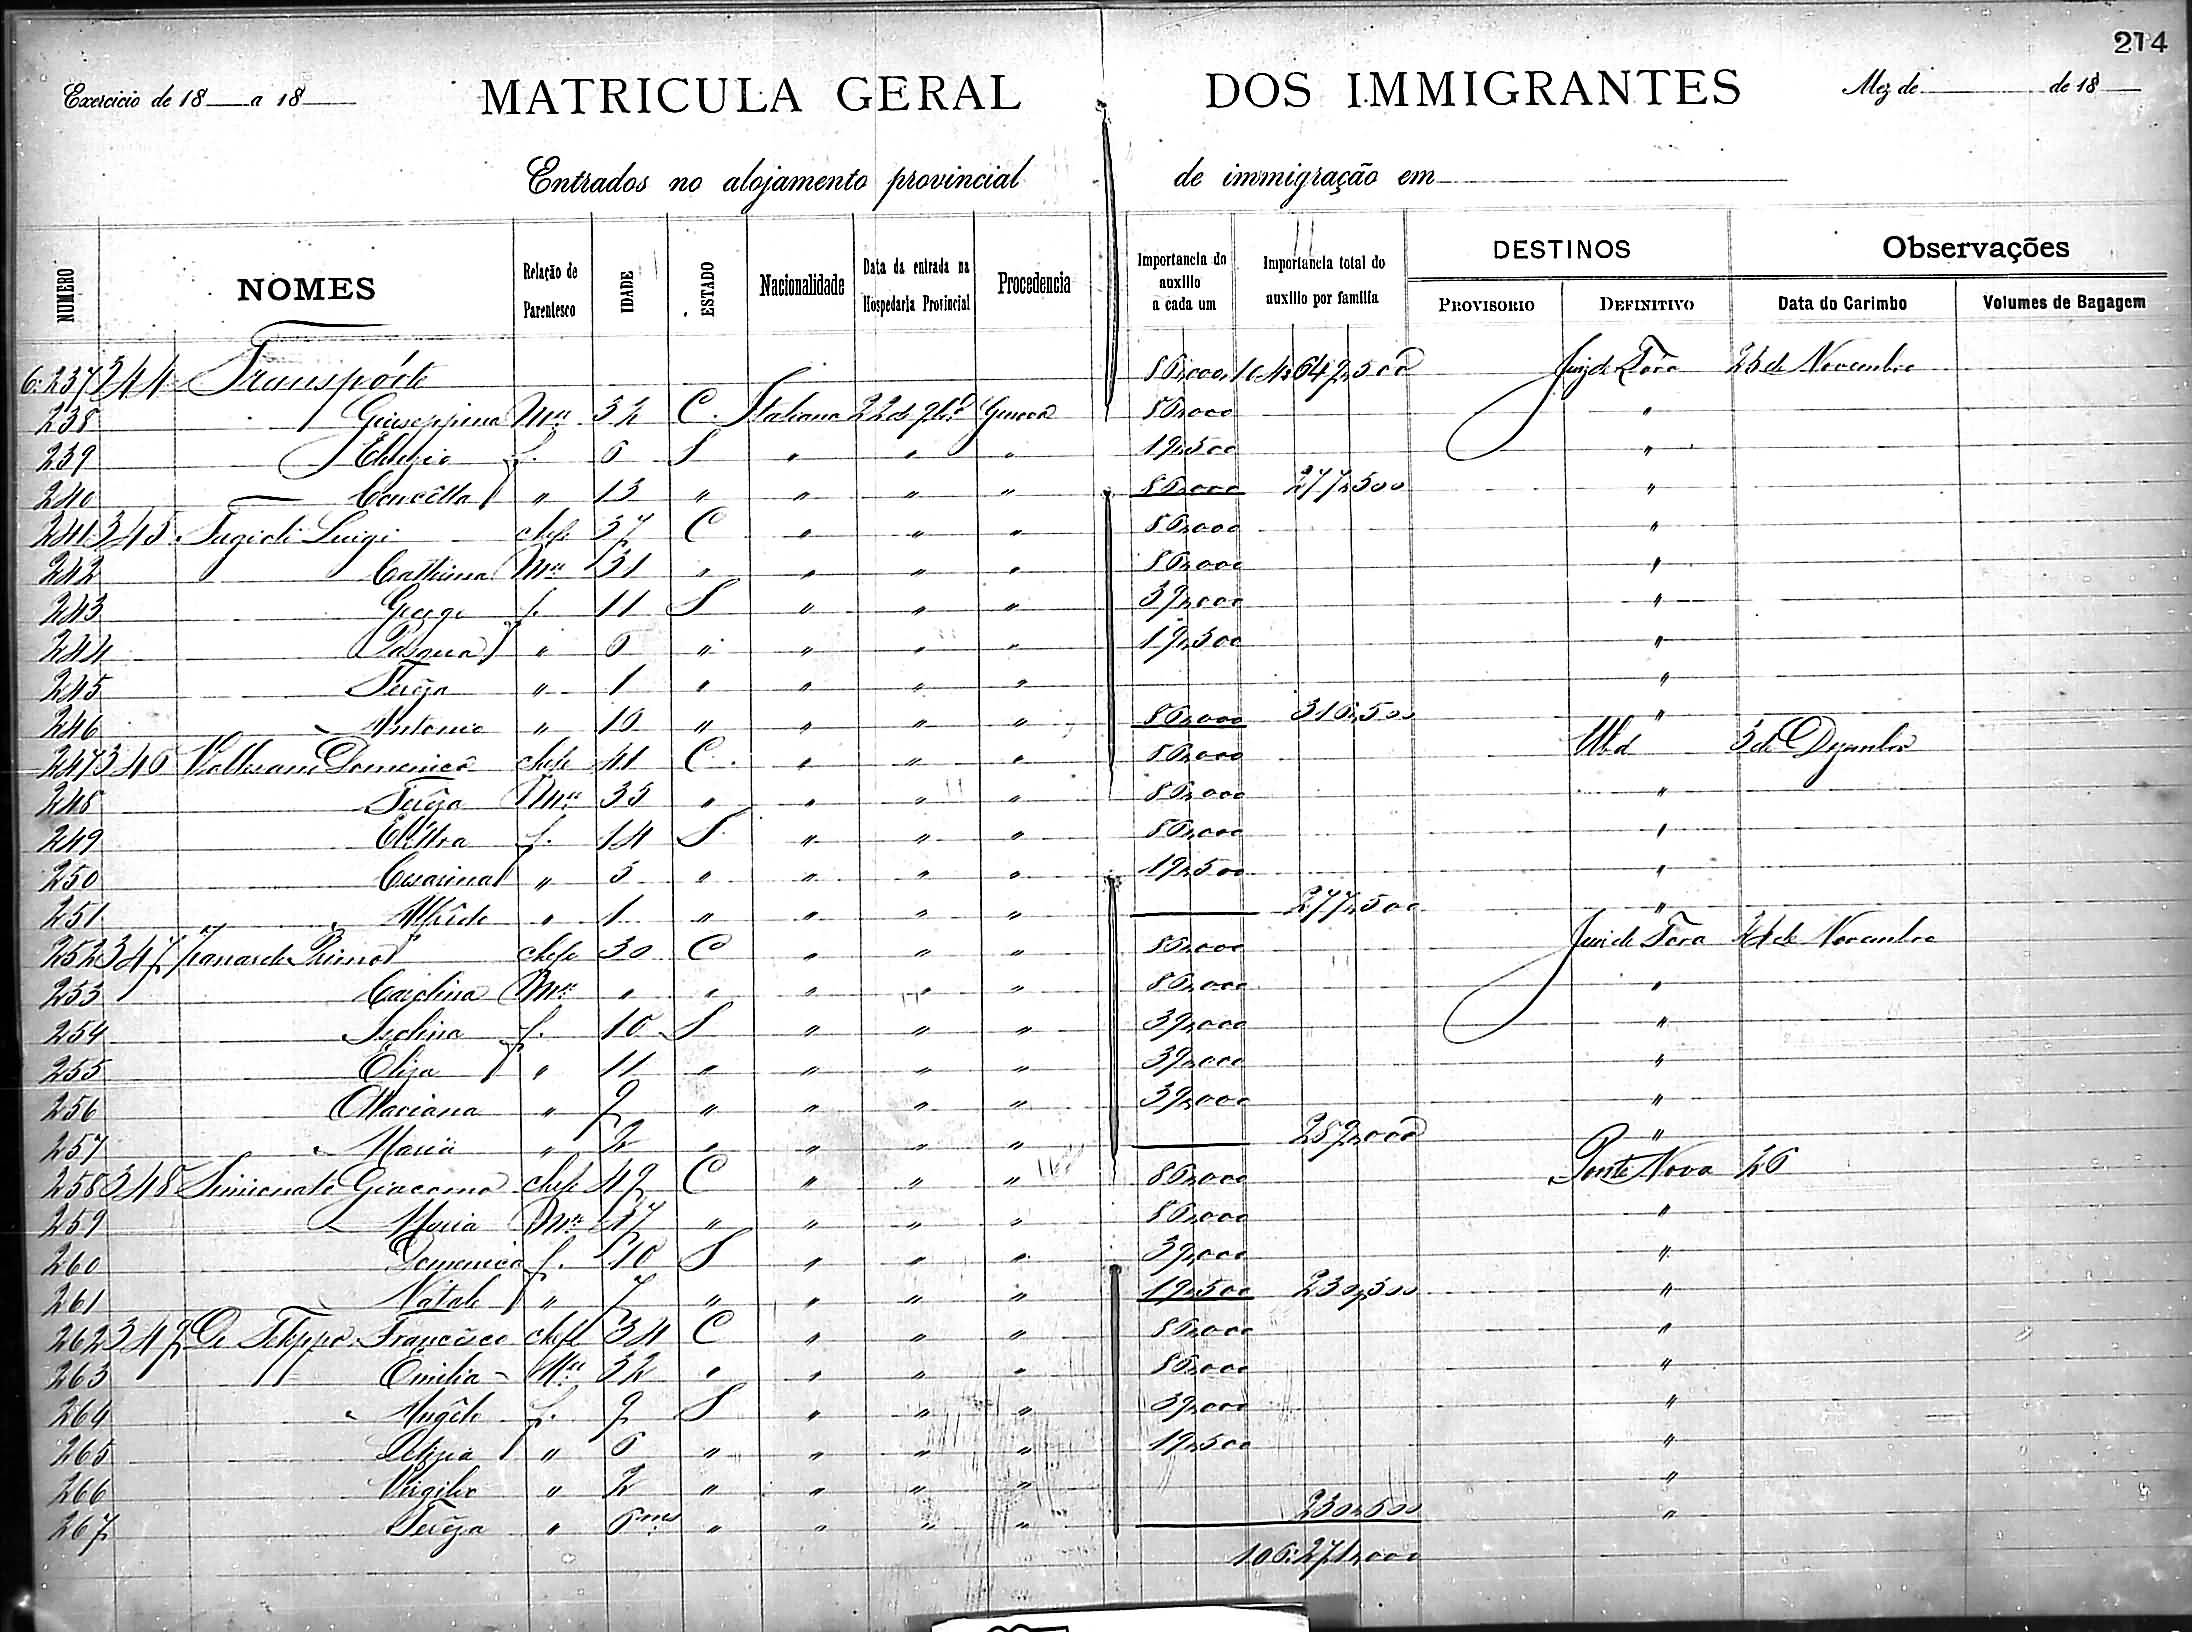 214
Exercicio de 18 a 18 MATRICULA GERAL DOS IMMIGRANTES Mez de de 18
Entrados no alojamento provincial de immigração em
NUMERO NOMES Relação de Parentesco IDADE ESTADO Nacionalidade Data da entrada na Hospedaria Provincial Procedencia Importancia do auxilio a cada um Importancia total do auxilio por familia DESTINOS PROVISORIO DEFINITIVO Observações Data do Carimbo Volumes de Bagagem
6:237 344 Transpórte 86,000 Juiz de Fóra 25 de Novembro
238 Giuseppina Mer 32 C. Italiana 22 de 9bro Genova 86,000 "
239 f. 6 S " " " 19,500 "
240 Concêtta " 13 " " " " 86,000 277,500 "
241 345 Luigi chefe 37 C " " " 86,000 "
242 Catterina Mer 31 " " " " 86,000 "
243 f. 11 S " " " 39,000 "
244 Pasqua " 6 " " " " 19,500 "
245 Terêza " 1 " " " " "
246 Antonio " 10 " " " " 86,000 316,500 "
247 346 Domenico chefe 41 C. " " " 86,000 Ubá 3 de Dezembro
248 Terêza Mer 35 " " " " 86,000 "
249 Eléttra f. 14 S " " " 86,000 "
250 Cesarina " 5 " " " " 19,500 "
251 Alfrêdo " 1 " " " " 277,500 "
252 347 Primo chefe 30 C " " " 86,000 Juiz de Fora 24 de Novembro
253 Carolina Mer " " " " " 86,000 "
254 Isolina f. 10 S " " " 39,000 "
255 Eliza " 11 " " " " 39,000 "
256 Mariana " 9 " " " " 39,000 "
257 Maria " 2 " " " " 289,000 "
258 348 Simionato Giacomo chefe 49 C " " " 86,000 Ponte Nova 26
259 Maria Mer 47 " " " " 86,000 "
260 Domenico f. 10 S " " " 39,000 "
261 Natale " 7 " " " " 19,500 230,500 "
262 349 De Felippo Francêsco chefe 34 C " " " 86,000 "
263 Emilia Mer 32 " " " " 86,000 "
264 Angêlo f. 9 S " " " 39,000 "
265 Letizia " 6 " " " " 19,500 "
266 Virgilio " 2 " " " " "
267 Terêza " 6 mes " " " " 230,500 "
106:271,000